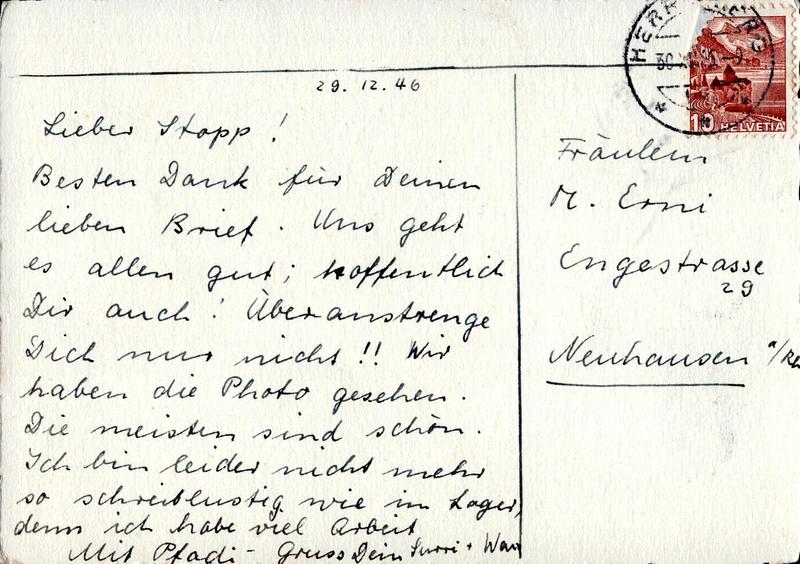 29.12.46
Lieber Stopp!
Besten Dank für Deinen
lieben Brief. Uns geht
es allen gut; hoffentlich
Dir auch! Überanstrenge
Dich nur nicht!! Wir
haben die Photo gesehen.
Die meisten sind schön.
Ich bin leider nicht mehr
so schreiblustig wie im Lager,
denn ich habe viel Arbeit
Mit Pfadi-Gruss Dein Surri +
10 HELVETIA
Fräulein
M. Erni
Engestrasse
29
Neuhausen a/Rh